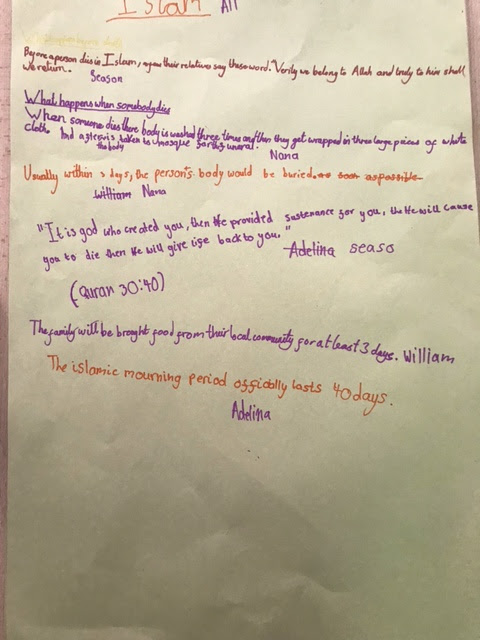 Islam All
Before a person dies in Islam, their relatives say these word. "Verily we belong to Allah and truly to him shall
we return.
Season
What happens when somebody dies
When someone dies there body is washed three times and then they get wrapped in three large pieces of white
cloths And after is taken to a mosque for this funeral.
the body
Nana
Usually within 3 days, the person's body would be buried as soon as possible
William Nana
"It is god who created you, then He provided sustenance for you, the He will cause
you to die then He will give life back to you."
Adelina seaso
(Quran 30:40)
The family will be brought food from their local community for at least 3 days. William
The islamic mourning period officially lasts 40 days.
Adelina